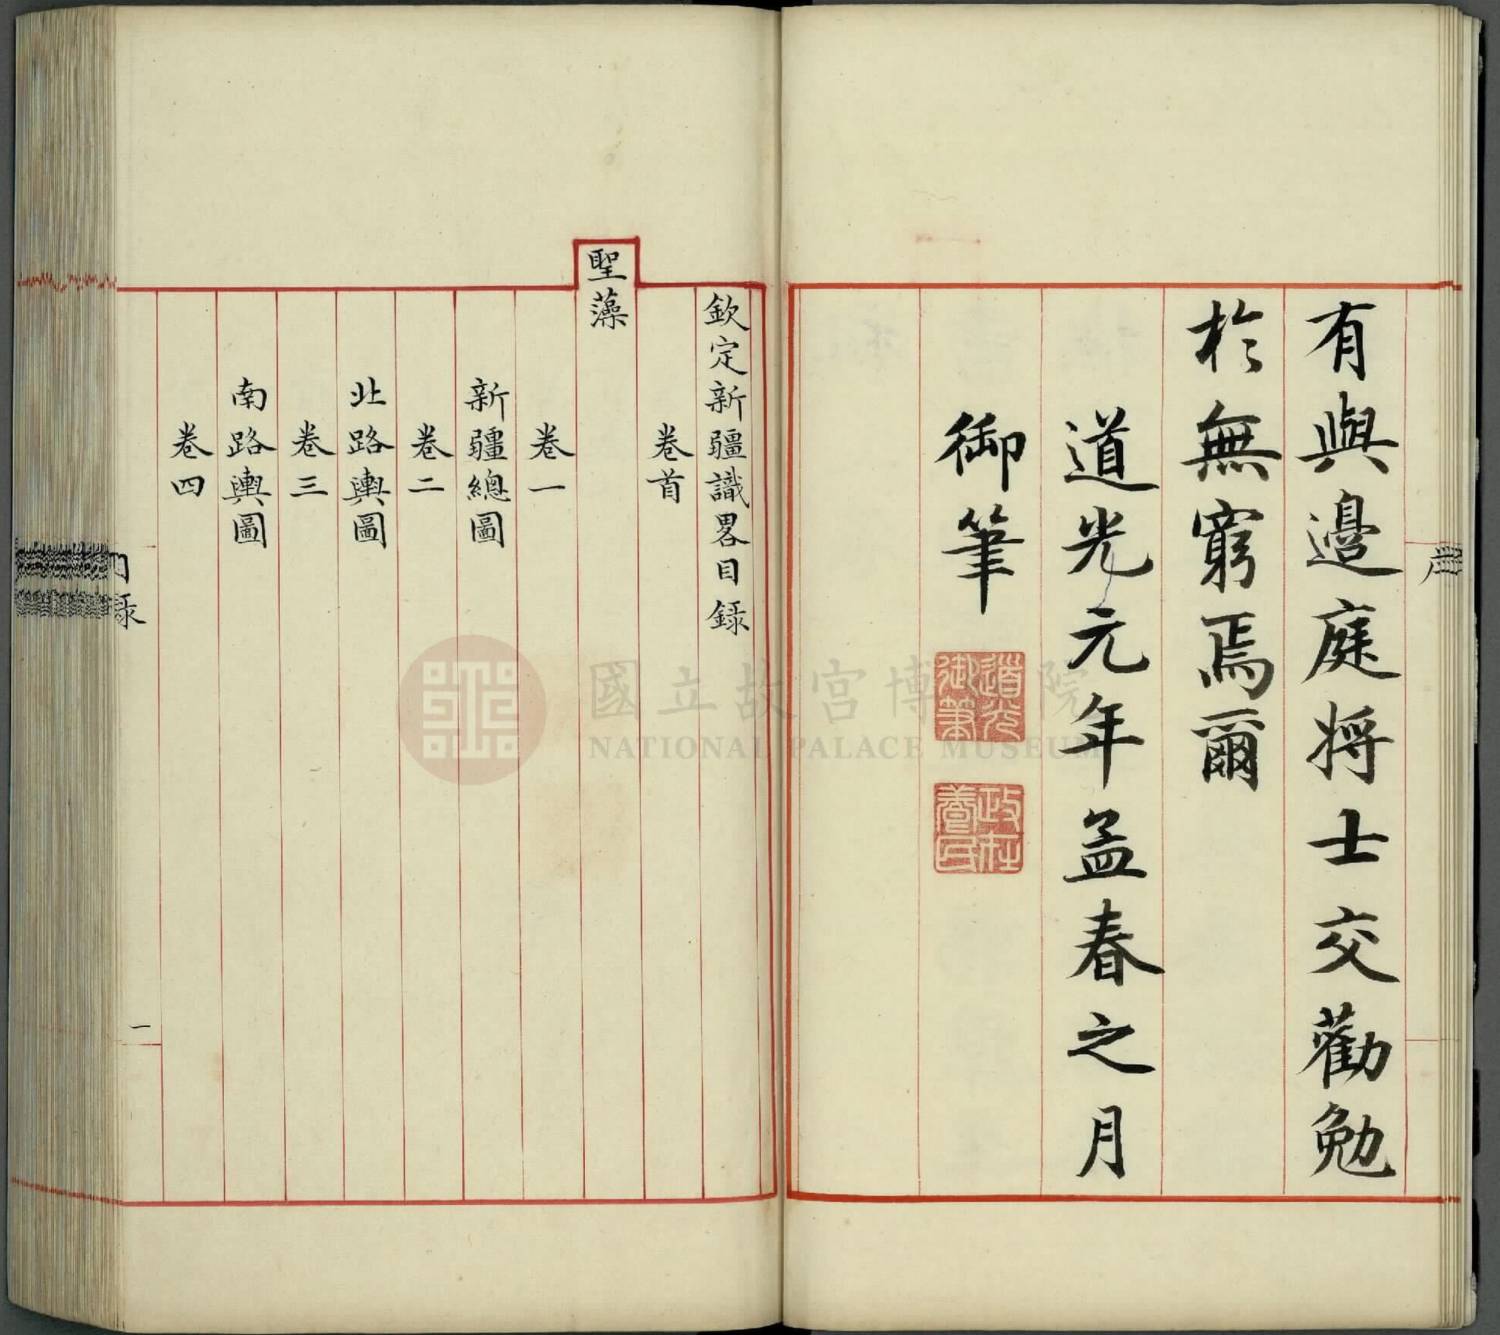 有與邉庭將士交勸勉
於無窮焉爾
道光元年孟春之月
御筆
道光御筆
政在養民
欽定新疆識畧目録
卷首
聖藻
卷一
新疆總圖
卷二
北路輿圖
卷三
南路輿圖
卷四
一
國立故宮博物院
NATIONAL PALACE MUSEUM